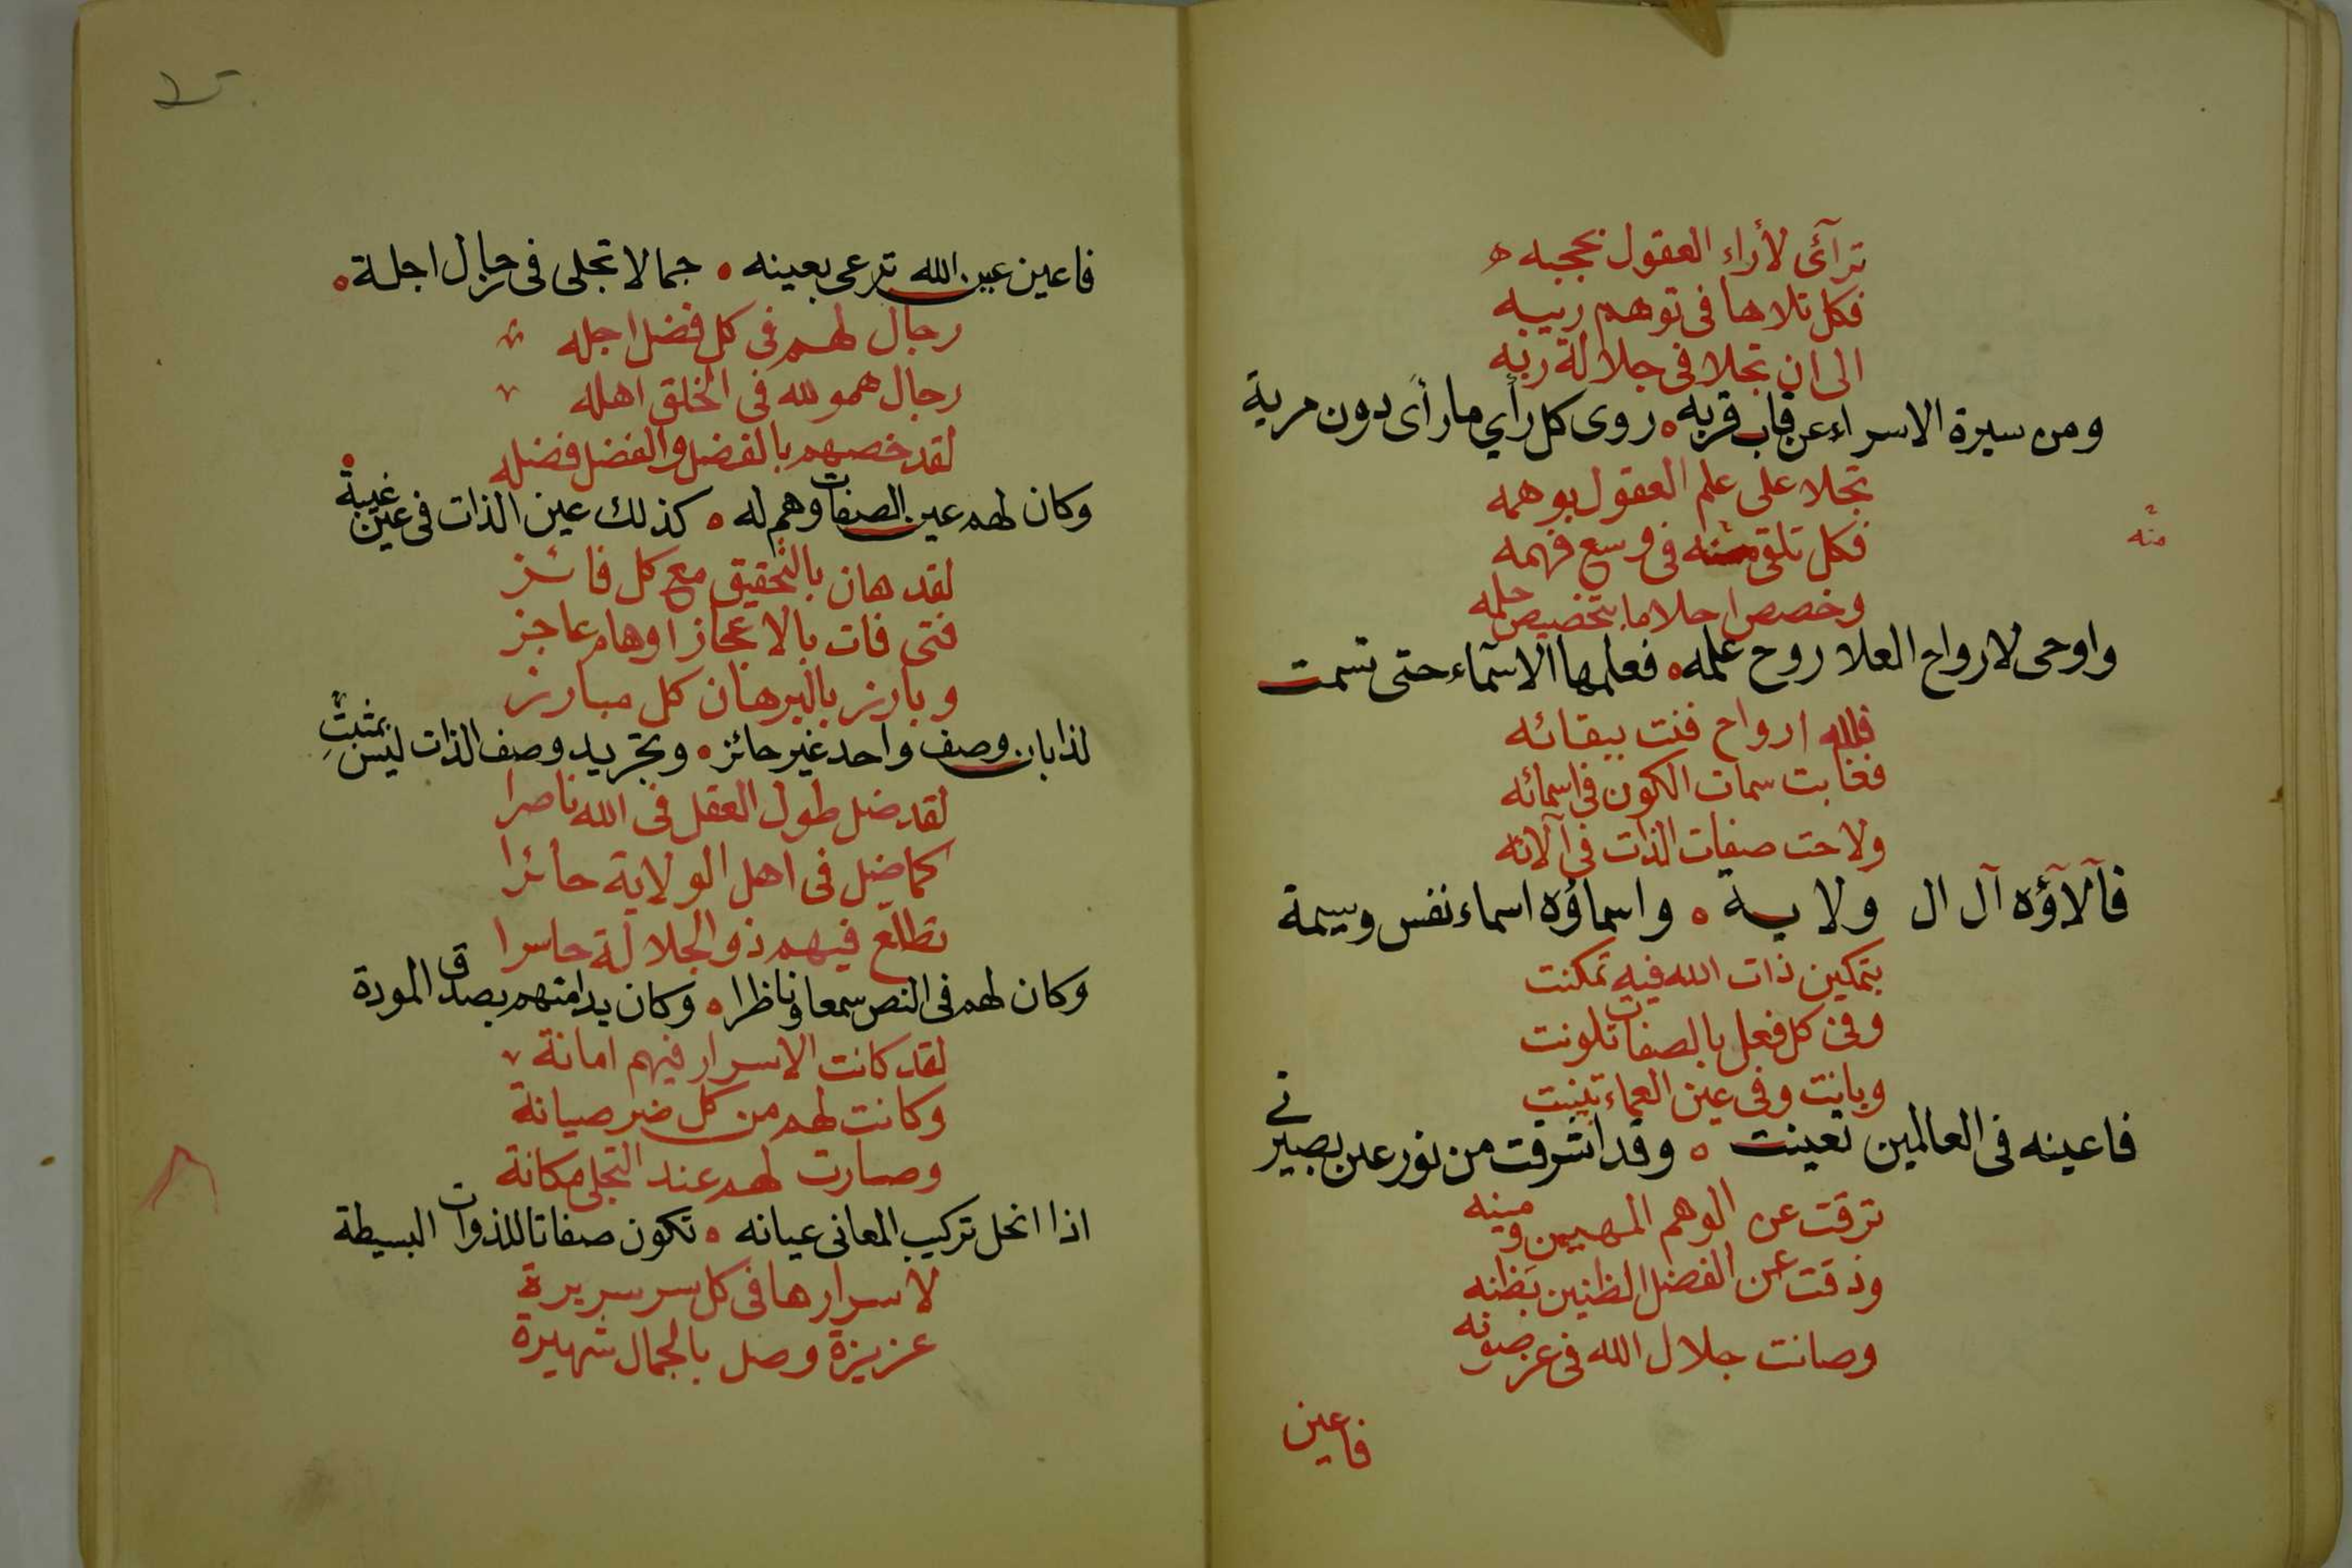 ترآئى لأراء العقول بحجبه
فكل تلاها فى توهم ريبه
الى ان تجلا فى جلالة ربه
ومن سيرة الاسراء عن قاب قربه روى كل رأي ما رأى دون مرية
تجلا على علم العقول بوهمه
فكل تلقى منه فى وسع فهمه
منه
وخصص احلاما بتخصيص حلمه
واوحى لارواح العلا روح علمه فعلمها الاسماء حتى تسمت
فلله ارواح فنت ببقائه
فغابت سمات الكون فى اسمائه
ولاحت صفات الذات فى آلائه
فآلآؤه آل ال ولاية واسماؤه اسماء نفس وسيمة
بتمكين ذات الله فيه تمكنت
وفى كل فعل بالصفات تلونت
وبانت وفى عين العماء تبينت
فاعينه فى العالمين تعينت وقد اشرقت من نور عين بصيرتي
ترقت عن الوهم المهين ومينه
وذقت عن الفضل الظنين بظنه
وصانت جلال الله فى عز صونه
فاعين
فاعين عين الله ترعى بعينه جمالا تجلى فى رجال اجلة
رجال لهم فى كل فضل اجله
رجال همو لله فى الخلق اهله
لقد خصهم بالفضل والفضل فضله
وكان لهم عين الصفات وهم له كذلك عين الذات فى عين غيبة
لقد هان بالتحقيق مع كل فائز
فتى فات بالاعجاز اوهام عاجز
وبارز بالبرهان كل مبارز
لذا بان وصف واحد غير حائز وتجريد وصف الذات ليس بمثبت
لقد ضل طول العقل فى الله ناصرا
كما ضل فى اهل الولاية حائرا
تطلع فيهم ذو الجلالة حاسرا
وكان لهم فى النص سمعا وناظرا وكان يدامتهم بصدق المودة
لقد كانت الاسرار فيهم امانة
وكانت لهم من كل ضر صيانة
وصارت لهم عند التجلى مكانة
اذا انحل تركيب المعانى عيانه تكون صفاتا للذوات البسيطة
لاسرارها فى كل سر سريرة
عزيزة وصل بالجمال شهيرة